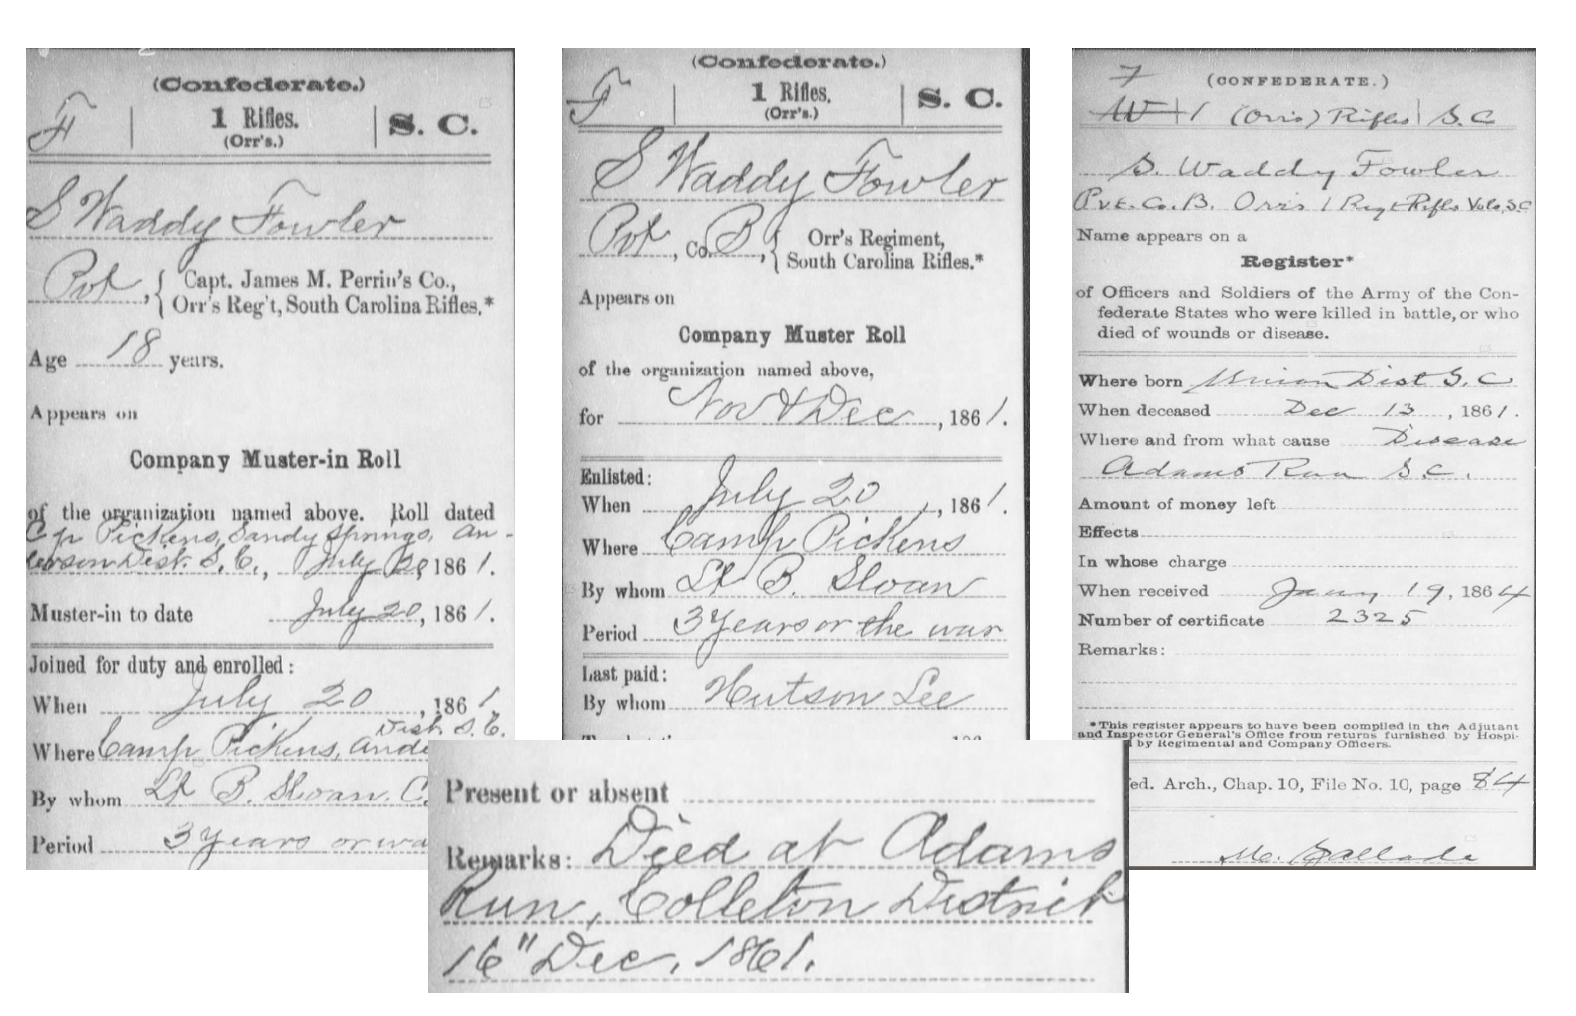 (Confederate.)
F | 1 Rifles. (Orr's.) | S. C.
S Waddy Fowler
Pvt, { Capt. James M. Perrin's Co.,
Orr's Reg't, South Carolina Rifles.*
Age 18 years.
Appears on
Company Muster-in Roll
of the organization named above. Roll dated
Cp Pickens, Sandy Springs, An-
derson Dist. S. C., July 20, 1861.
Muster-in to date July 20, 1861.
Joined for duty and enrolled:
When July 20, 1861.
Dist. S. C.
Where Camp Pickens, Ande
By whom Lt B. Sloan. C.
Period 3 years or wa
(Confederate.)
F | 1 Rifles. (Orr's.) | S. C.
S Waddy Fowler
Pvt, Co. B, { Orr's Regiment,
South Carolina Rifles.*
Appears on
Company Muster Roll
of the organization named above,
for Nov & Dec, 1861.
Enlisted:
When July 20, 1861.
Where Camp Pickens
By whom Lt B. Sloan
Period 3 years or the war
Last paid:
By whom Hutson Lee
Present or absent
Remarks: Died at Adams
Run, Colleton District
16" Dec, 1861.
7 (CONFEDERATE.)
W 1 (Orr's) Rifles | S. C
S. Waddy Fowler
Pvt. Co. B. Orrs 1 Regt Rifles Vols, S.C
Name appears on a
Register*
of Officers and Soldiers of the Army of the Con-
federate States who were killed in battle, or who
died of wounds or disease.
Where born Union Dist S. C
When deceased Dec 13, 1861.
Where and from what cause Disease
Adams Run S. C.
Amount of money left
Effects
In whose charge
When received Jany 19, 1864
Number of certificate 2325
Remarks:
*This register appears to have been compiled in the Adjutant
and Inspector General's Office from returns furnished by Hospi-
by Regimental and Company Officers.
ed. Arch., Chap. 10, File No. 10, page 84